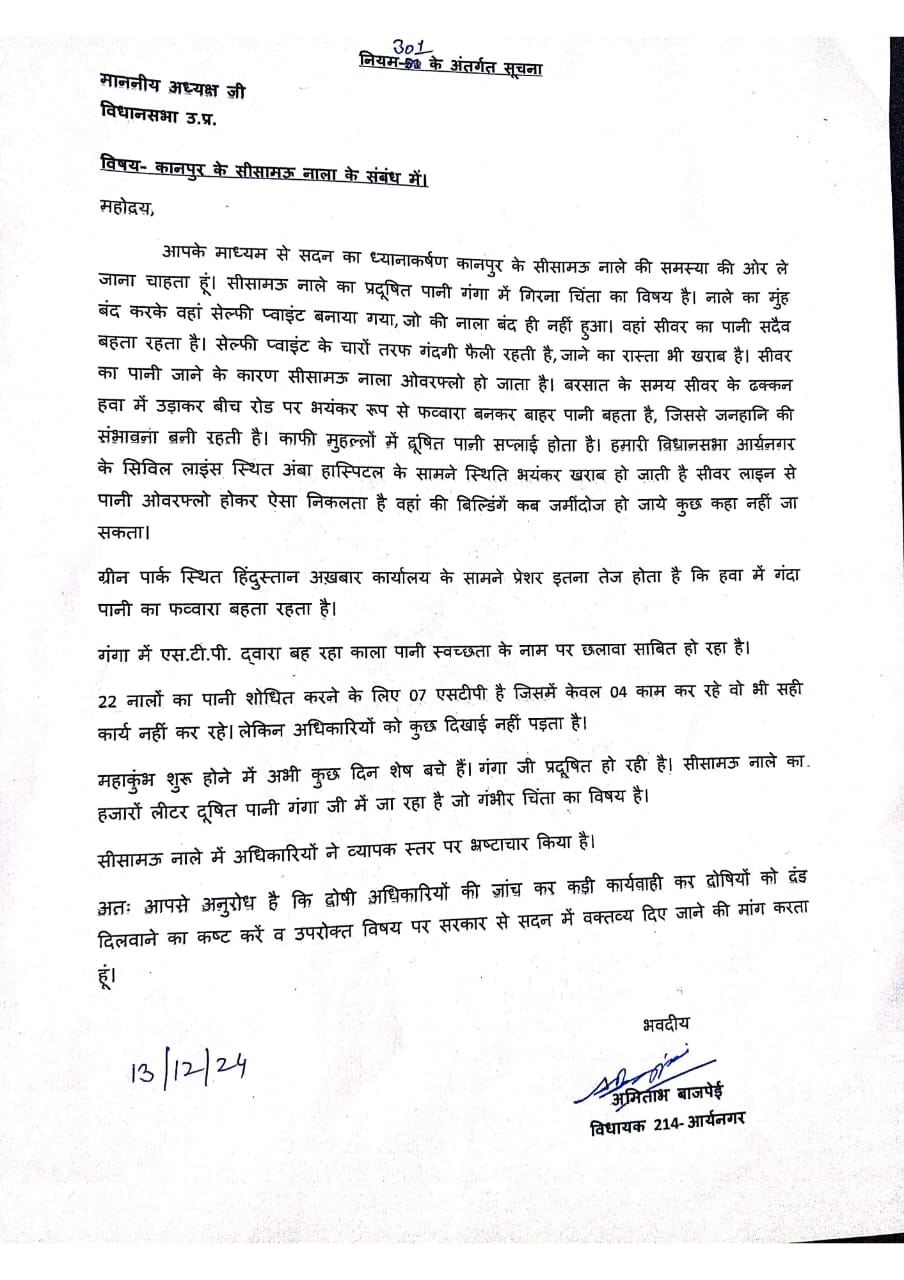 301
नियम- के अंतर्गत सूचना
माननीय अध्यक्ष जी
विधानसभा उ.प्र.
विषय- कानपुर के सीसामऊ नाला के संबंध में।
महोदय,
आपके माध्यम से सदन का ध्यानाकर्षण कानपुर के सीसामऊ नाले की समस्या की ओर ले
जाना चाहता हूं। सीसामऊ नाले का प्रदूषित पानी गंगा में गिरना चिंता का विषय है। नाले का मुंह
बंद करके वहां सेल्फी प्वाइंट बनाया गया, जो की नाला बंद ही नहीं हुआ। वहां सीवर का पानी सदैव
बहता रहता है। सेल्फी प्वाइंट के चारों तरफ गंदगी फैली रहती है, जाने का रास्ता भी खराब है। सीवर
का पानी जाने के कारण सीसामऊ नाला ओवरफ्लो हो जाता है। बरसात के समय सीवर के ढक्कन
हवा में उड़ाकर बीच रोड पर भयंकर रूप से फव्वारा बनकर बाहर पानी बहता है, जिससे जनहानि की
संभावना बनी रहती है। काफी मुहल्लों में दूषित पानी सप्लाई होता है। हमारी विधानसभा आर्यनगर
के सिविल लाइंस स्थित अंबा हास्पिटल के सामने स्थिति भयंकर खराब हो जाती है सीवर लाइन से
पानी ओवरफ्लो होकर ऐसा निकलता है वहां की बिल्डिंगें कब जमींदोज हो जाये कुछ कहा नहीं जा
सकता।
ग्रीन पार्क स्थित हिंदुस्तान अख़बार कार्यालय के सामने प्रेशर इतना तेज होता है कि हवा में गंदा
पानी का फव्वारा बहता रहता है।
गंगा में एस.टी.पी. द्वारा बह रहा काला पानी स्वच्छता के नाम पर छलावा साबित हो रहा है।
22 नालों का पानी शोधित करने के लिए 07 एसटीपी है जिसमें केवल 04 काम कर रहे वो भी सही
कार्य नहीं कर रहे। लेकिन अधिकारियों को कुछ दिखाई नहीं पड़ता है।
महाकुंभ शुरू होने में अभी कुछ दिन शेष बचे हैं। गंगा जी प्रदूषित हो रही है। सीसामऊ नाले का
हजारों लीटर दूषित पानी गंगा जी में जा रहा है जो गंभीर चिंता का विषय है।
सीसामऊ नाले में अधिकारियों ने व्यापक स्तर पर भ्रष्टाचार किया है।
अतः आपसे अनुरोध है कि दोषी अधिकारियों की जांच कर कड़ी कार्यवाही कर दोषियों को दंड
दिलवाने का कष्ट करें व उपरोक्त विषय पर सरकार से सदन में वक्तव्य दिए जाने की मांग करता
हूं।
भवदीय
13/12/24
अमिताभ बाजपेई
विधायक 214-आर्यनगर